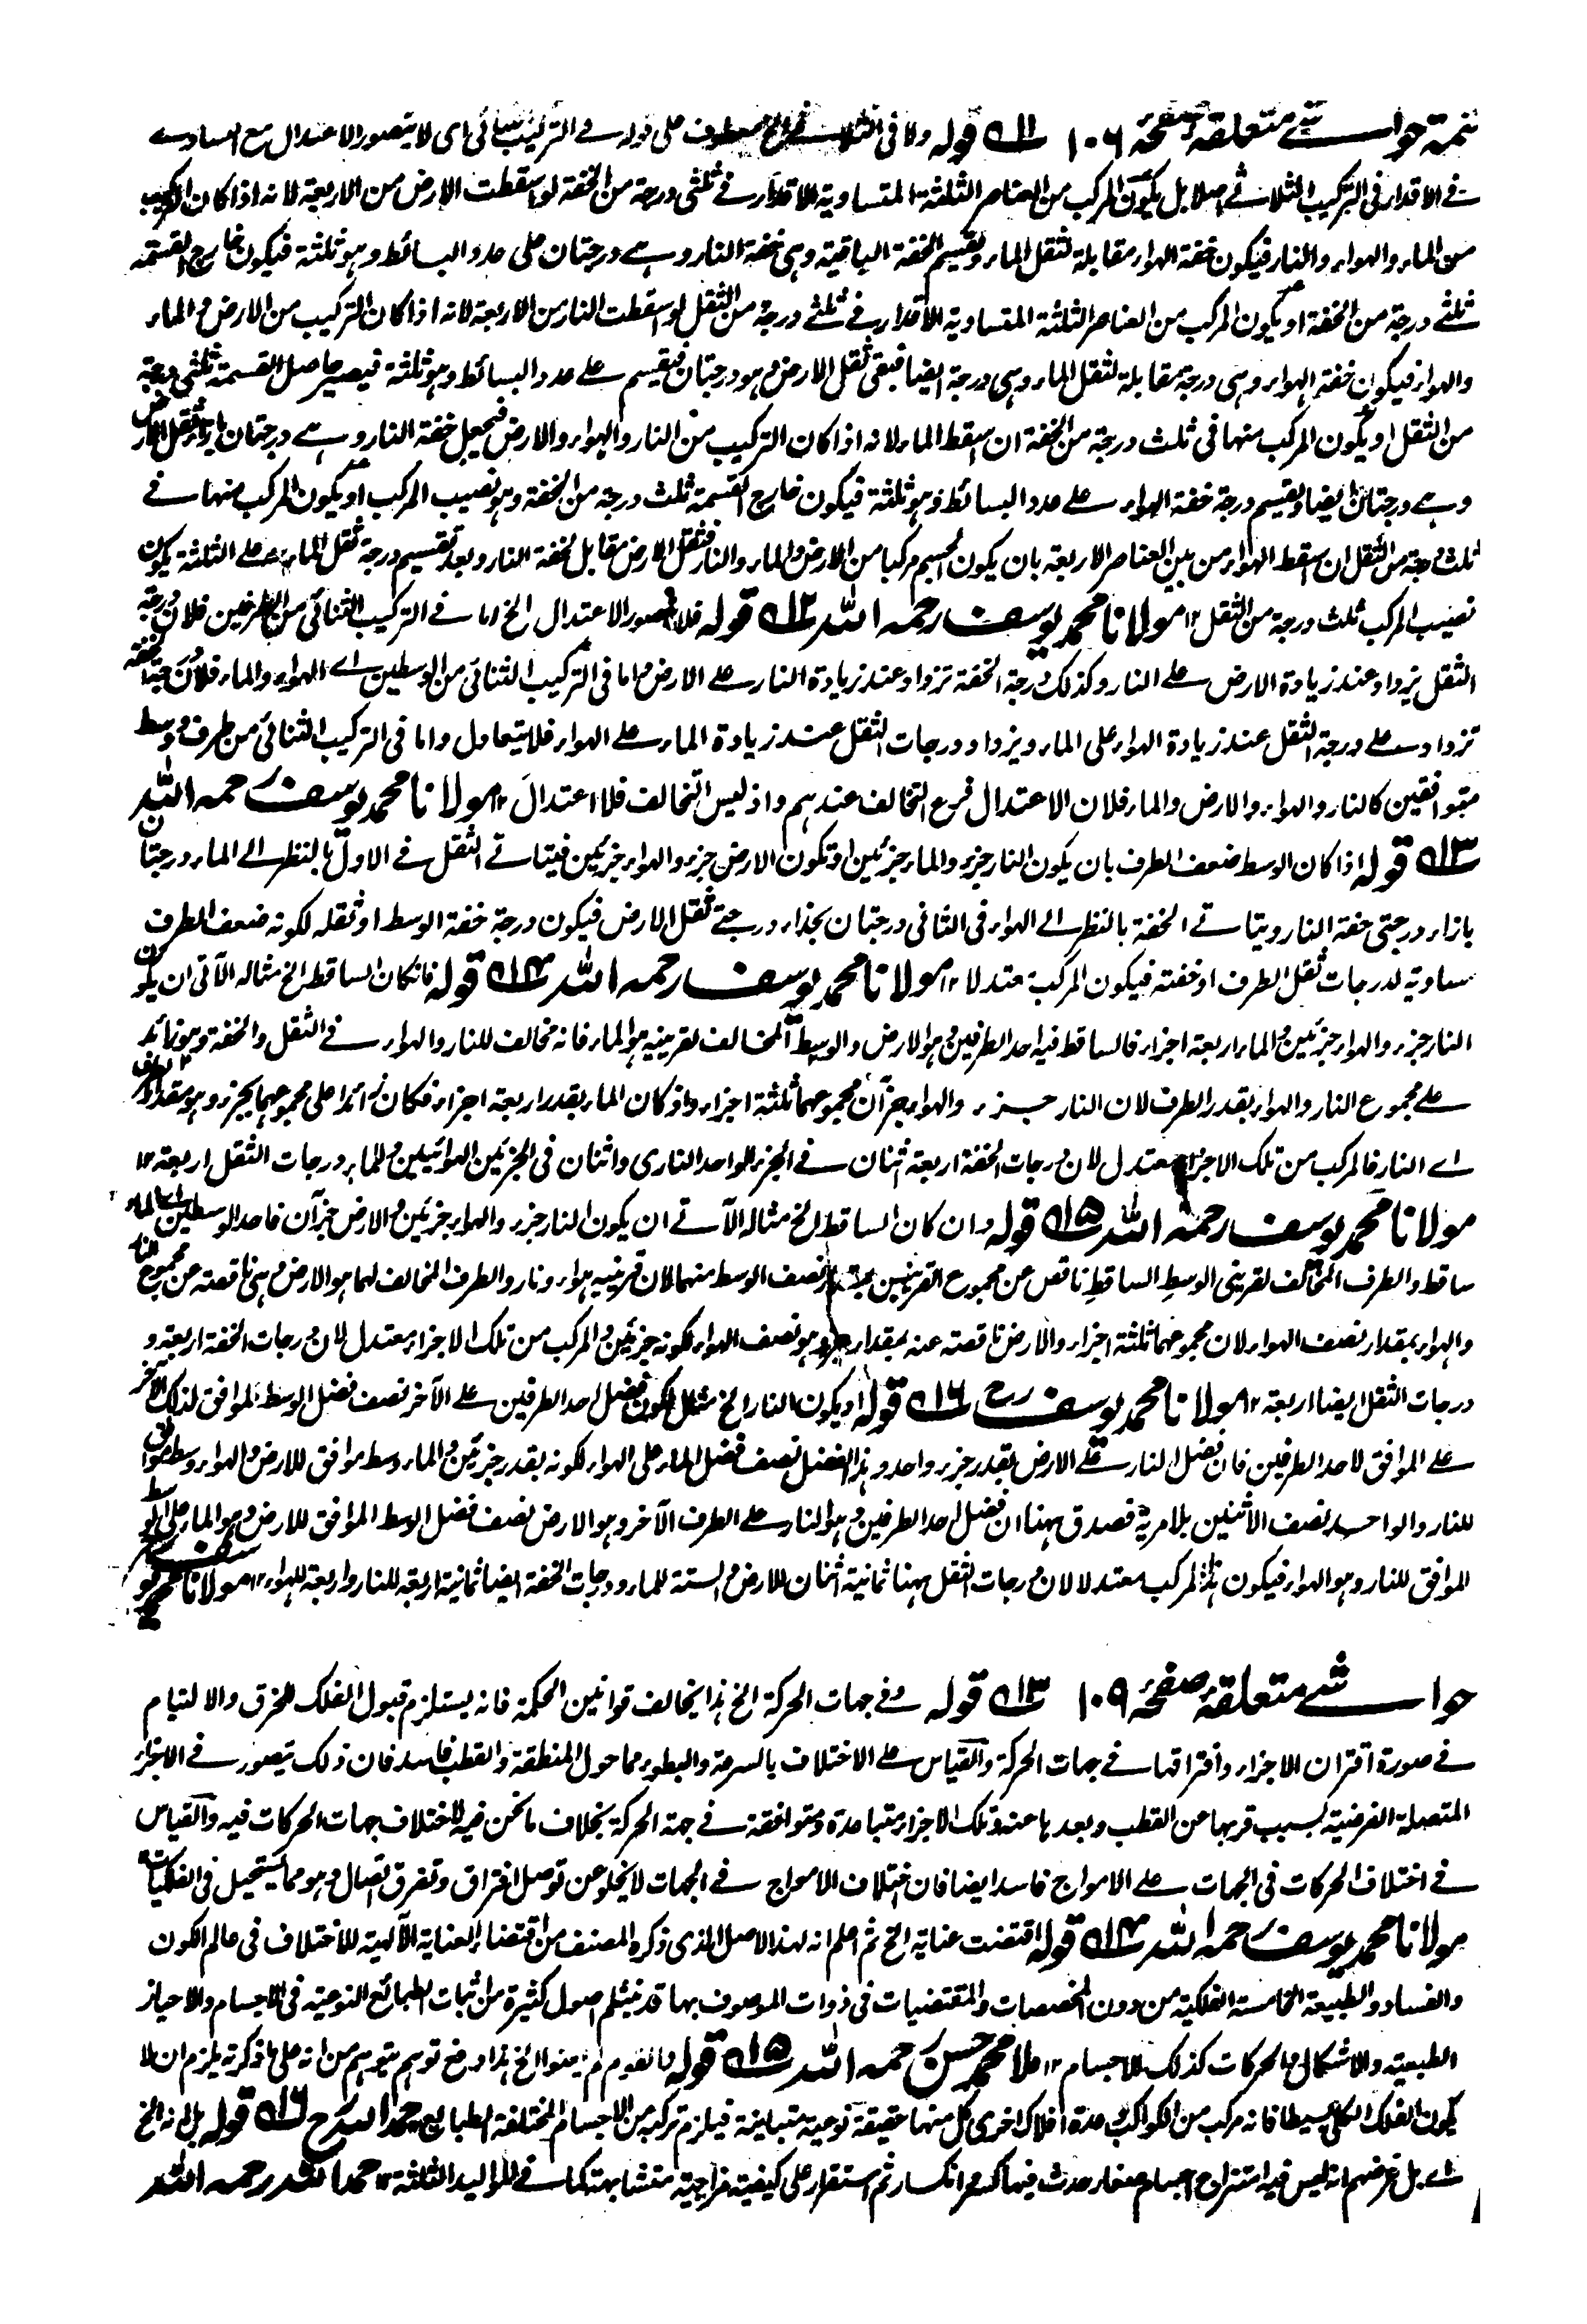 تتمة حواشے متعلقہ صفحہ ۱۰۶ ؁۱۱ قولہ ولا فی الثلاثے الخ معطوف علی قولہ فے الترکیب الثنائی ای لا یتصور الاعتدال مع المساوے
فے الاقدار فی الترکیب الثلاثے اصلا بل یکون المرکب من العناصر الثلثة المتساویة الاقدار فے ثلثی درجة من الخفة لو اسقطت الارض من الاربعة لانہ اذا کان الترکیب
من الماء والہواء والنار فیکون خفة الہواء مقابلة لثقل الماء وتقسیم الخفة الباقیة وہی خفة النار وہے درجتان علی عدد البسائط وہو ثلثة فیکون خارج القسمة
ثلثے درجة من الخفة او یکون المرکب من العناصر الثلثة المتساویة الاقدار فے ثلثے درجة من الثقل لو اسقطت النار من الاربعة لانہ اذا کان الترکیب من الارض والماء
والہواء فیکون خفة الہواء وہی درجة مقابلة لثقل الماء وہی درجة ایضا فبقی ثقل الارض وہو درجتان فیقسم علے عدد البسائط وہو ثلثة فیصیر حاصل القسمة ثلثی درجة
من الثقل او یکون المرکب منہا فی ثلث درجة من الخفة ان اسقط الماء لانہ اذا کان الترکیب من النار والہواء والارض فیجعل خفة النار وہے درجتان بازاء ثقل الارض
وہے درجتان ایضا وتقسیم درجة خفة الہواء علے عدد البسائط وہو ثلثة فیکون خارج القسمة ثلث درجة من الخفة وہو نصیب المرکب او یکون المرکب منہا فے
ثلث درجة من الثقل ان اسقط الہواء من بین العناصر الاربعة بان یکون الجسم مرکبا من الارض والماء والنار فثقل الارض مقابل لخفة النار وبعد تقسیم درجة ثقل الماء علے الثلثة یکون
نصیب المرکب ثلث درجة من الثقل ۱۲ مولانا محمد یوسف رحمہ اللہ ؁۱۲ قولہ فلا یتصور الاعتدال الخ اما فے الترکیب الثنائی من الطرفین فلان درجة
الثقل یزداد عند زیادة الارض علے النار وکذلک درجة الخفة تزداد عند زیادة النار علے الارض واما فی الترکیب الثنائی من الوسطین اے الہواء والماء فلان درجة الخفة
تزداد علے درجة الثقل عند زیادة الہواء علی الماء ویزداد درجات الثقل عند زیادة الماء علے الہواء فلا یتعادل واما فی الترکیب الثنائی من طرف ووسط
متوافقین کالنار والہواء والارض والماء فلان الاعتدال فرع التخالف عندہم واذ لیس التخالف فلا اعتدال ۱۲ مولانا محمد یوسف رحمہ اللہ
؁۱۳ قولہ اذا کان الوسط ضعف الطرف بان یکون النار جزء والماء جزئین او تکون الارض جزء والہواء جزئین فیتاتے الثقل فے الاول بالنظر الے الماء درجتان
بازاء درجتی خفة النار ویتاتے الخفة بالنظر الے الہواء فی الثانی درجتان بحذاء درجتے ثقل الارض فیکون درجة خفة الوسط او ثقلہ لکونہ ضعف الطرف
مساویة لدرجات ثقل الطرف او خفتہ فیکون المرکب معتدلا ۱۲ مولانا محمد یوسف رحمہ اللہ ؁۱۴ قولہ فان کان الساقط الخ مثالہ الآتی ان یکون
النار جزء والہواء جزئین والماء اربعة اجزاء فالساقط فیہ احد الطرفین وہو الارض والوسط المخالف لقرینیہ ہو الماء فانہ مخالف للنار والہواء فے الثقل والخفة وہو زائد
علے مجموع النار والہواء بقدر الطرف لان النار جزء والہواء جزآن مجموعہما ثلثة اجزاء واذ کان الماء بقدر اربعة اجزاء فکان زائدا علی مجموعہما بجزء وہو مقدار الطرف
اے النار فالمرکب من تلک الاجزاء معتدل لان درجات الخفة اربعة اثنان فے الجزء الواحد الناری واثنان فی الجزئین الہوائیین وللماء درجات الثقل اربعة ۱۲
مولانا محمد یوسف رحمہ اللہ ؁۱۵ قولہ وان کان الساقط الخ مثالہ الآتے ان یکون النار جزء والہواء جزئین والارض جزآن فاحد الوسطین اے الماء
ساقط والطرف المخالف لقرینی الوسط الساقط ناقص عن مجموع القرینین نصف الوسط منہما لان قرینیہ ہواء ونار والطرف المخالف لہما ہو الارض وہی ناقصة عن مجموع النار
والہواء بمقدار نصف الہواء لان مجموعہما ثلثة اجزاء والارض ناقصة عنہ بمقدار جزء وہو نصف الہواء لکونہ جزئین والمرکب من تلک الاجزاء معتدل لان درجات الخفة اربعة و
درجات الثقل ایضا اربعة ۱۲ مولانا محمد یوسف رح ؁۱۶ قولہ او یکون النار الخ مثال لکون فضل احد الطرفین علے الآخر نصف فضل الوسط الموافق لذلک الآخر
علے الموافق لاحد الطرفین فان فضل النار علے الارض بقدر جزء واحد وہذا الفضل نصف فضل الماء علی الہواء لکونہ بقدر جزئین والماء وسط موافق للارض والہواء وسط موافق
للنار والواحد نصف الاثنین بلا مریة فصدق ہہنا ان فضل احد الطرفین وہو النار علے الطرف الآخر وہو الارض نصف فضل الوسط الموافق للارض وہو الماء علی الوسط
الموافق للنار وہو الہواء فیکون ہذا المرکب معتدلا لان درجات الثقل ہہنا ثمانیة اثنان للارض والستة للماء ودرجات الخفة ایضا ثمانیة اربعة للنار واربعة للہواء ۱۲ مولانا محمد یوسف
حواشے متعلقہ صفحہ ۱۰۹ ؁۱۳ قولہ وفے جہات الحرکة الخ ہذا یخالف قوانین الحکمة فانہ یستلزم قبول الفلک للخرق والالتیام
فے صورة اقتران الاجزاء وافتراقہا فے جہات الحرکة والقیاس علے الاختلاف بالسرعة والبطوء مما حول المنطقة والقطب فاسد فان ذلک یتصور فے الاجزاء
المتصلة الفرضیة بسبب قربہا عن القطب وبعدہا عنہ وتلک الاجزاء متباعدة ومتوافقة فے جہة الحرکة بخلاف ما نحن فیہ لاختلاف جہات الحرکات فیہ والقیاس
فے اختلاف الحرکات فی الجہات علے الامواج فاسد ایضا فان اختلاف الامواج فے الجہات لا یخلو عن توصل افتراق وتفرق اتصال وہو مما یستحیل فی الفلکیات
مولانا محمد یوسف رحمہ اللہ ؁۱۴ قولہ اقتضت عنایة الخ ثم اعلم انہ لہذا الاصل الذی ذکرہ المصنف من اقتضاء العنایة الآلہیة للاختلاف فی عالم الکون
والفساد والطبیعة الخامسة الفلکیة من دون المخصصات والمقتضیات فی ذوات الموصوف بہا قد ینثلم اصول کثیرة من اثبات الطبائع النوعیة فی الاجسام والاحیاز
الطبعیة والاشکال والحرکات کذلک للاجسام ۱۲ ملا محمد حسن رحمہ اللہ ؁۱۵ قولہ فالقوم لم یعنوا الخ ہذا دفع توہم یتوہم من انہ علی ما ذکرتہ یلزم ان لا
یکون الفلک الکلی بسیطا فانہ مرکب من الکواکب وعدة افلاک اخری کل منہا حقیقة نوعیة متباینة فیلزم ترکبہ من الاجسام المختلفة الطبائع حمد اللہ رح ؁۱۶ قولہ بل انہ الخ
اے بل غرضہم انہ لیس فیہ امتزاج اجسام صغار حدث فیہا کسر وانکسار ثم استقرار علی کیفیة مزاجیة متشابہة کما فے الموالید الثلثة ۱۲ حمد اللہ رحمہ اللہ